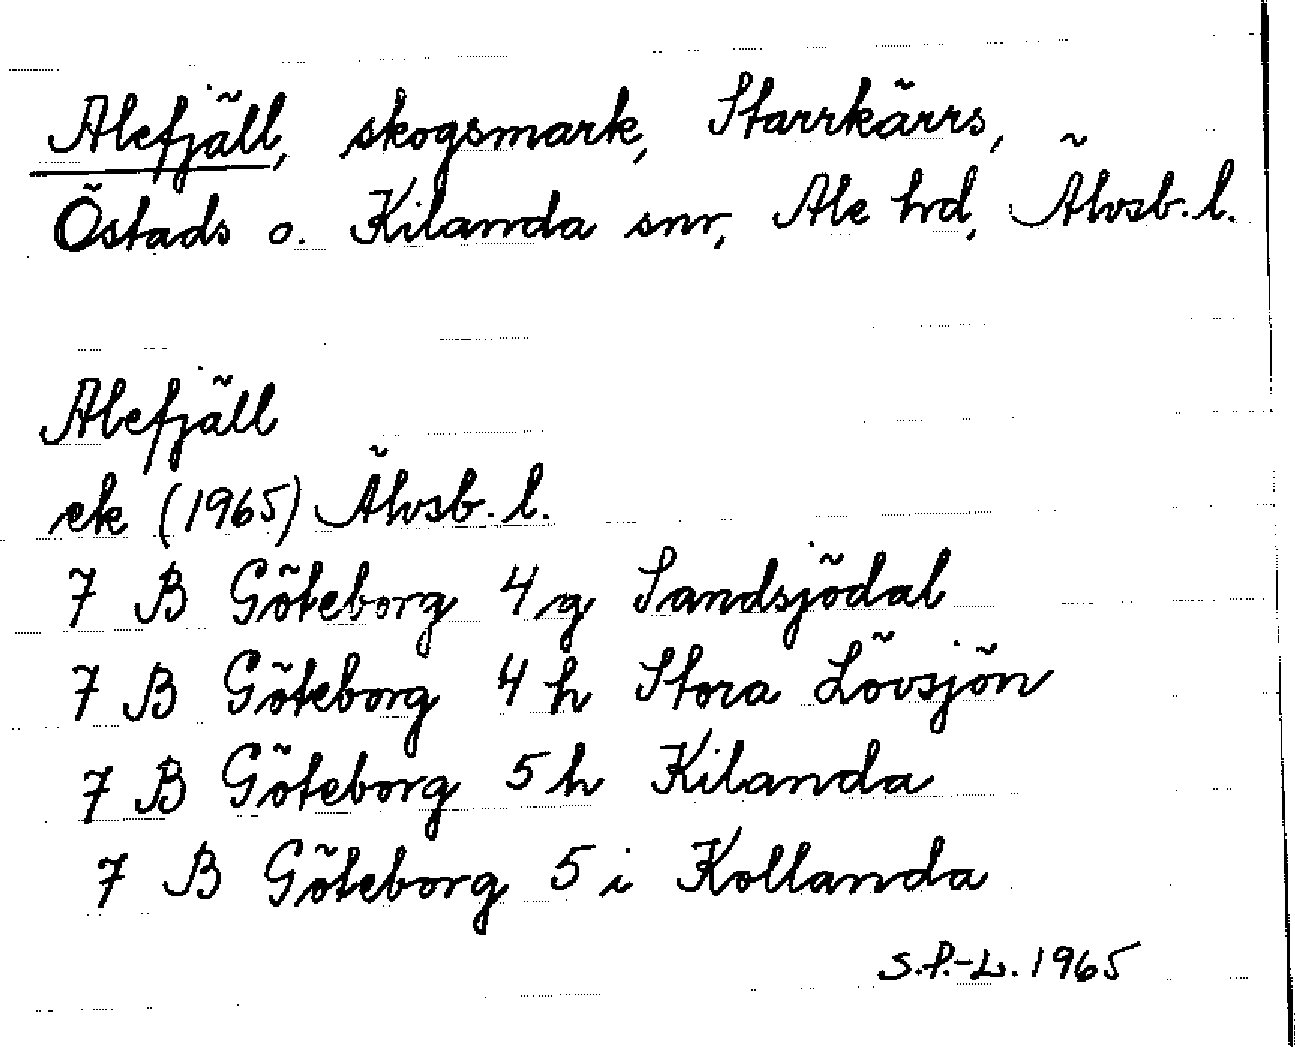 Alefjäll, skogsmark, Starrkärrs,
Östads o. Kilanda snr, Ale hd, Älvsb. l.
Alefjäll
ek (1965) Älvsb. l.
7 B Göteborg 4 g Sandsjödal
7 B Göteborg 4 h Stora Lövsjön
7 B Göteborg 5 h Kilanda
7 B Göteborg 5 i Kollanda
S.P.-L. 1965